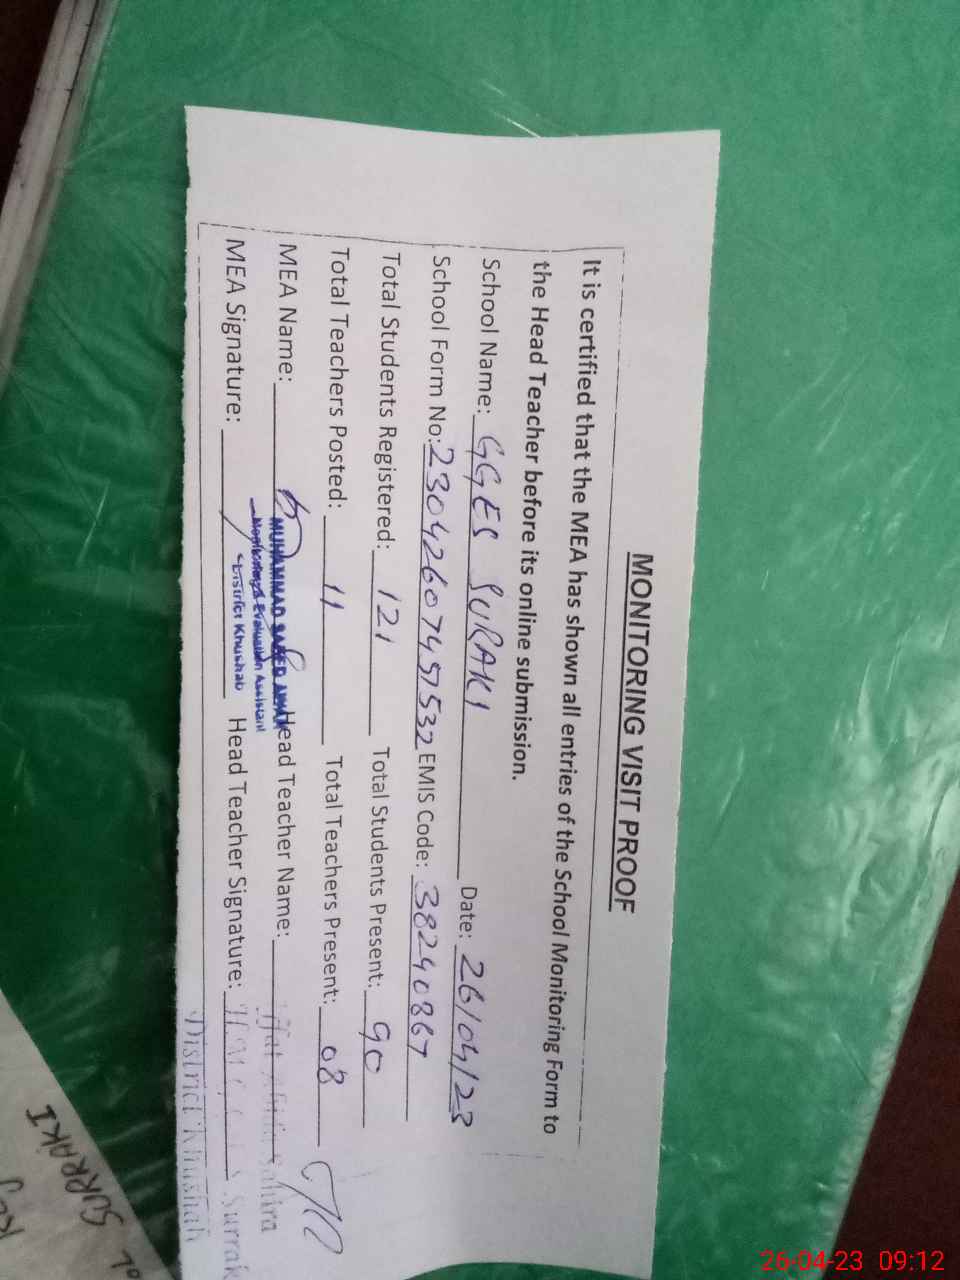 MONITORING VISIT PROOF
It is certified that the MEA has shown all entries of the School Monitoring Form to
the Head Teacher before its online submission.
School Name: GGES SURAKI Date: 26/04/23
School Form No: 23042607457532 EMIS Code: 38240867
Total Students Registered: 121 Total Students Present: 90
Total Teachers Posted: 11 Total Teachers Present: 08
MEA Name: MUHAMMAD SAEED Head Teacher Name:
Monitoring & Evaluation Assistant
District Khushab
MEA Signature: Head Teacher Signature:
District Khushab
SURRAKI
26-04-23 09:12